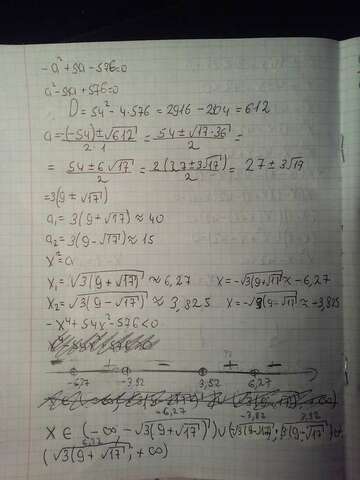 -a²+54a-576=0
a²-54a+576=0
D=54²-4·576=2916-2304=612
a=(-54)±√612/2·1=54±√17·36/2=
=54±6√17/2=2(27±3√17)/2=27±3√17
=3(9±√17)
a₁=3(9+√17)≈40
a₂=3(9-√17)≈15
x²=a
x₁=√3(9+√17)≈6,27 x=-√3(9+√17)≈-6,27
x₂=√3(9-√17)≈3,825 x=-√3(9-√17)≈-3,825
-x⁴+54x²-576<0
- + - + -
-6,27 -3,52 3,52 6,27
-6,27 -3,82 3,82
x∈(-∞-√3(9+√17))∪(-√3(9-√17);√3(9-√17))∪
6,27
(√3(9+√17;+∞)